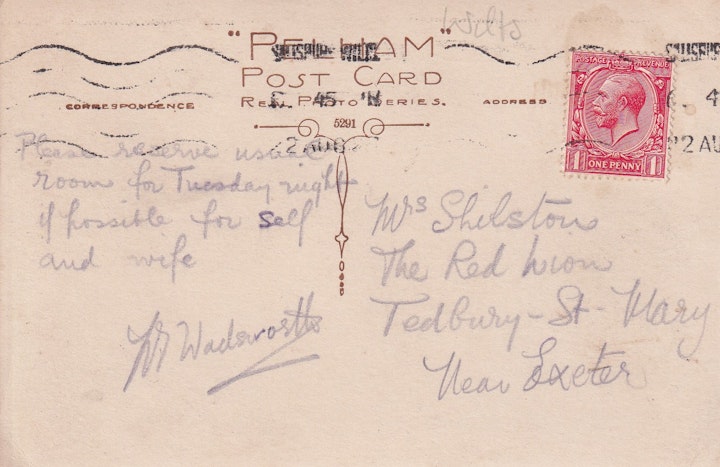 Wilts
"PELHAM"
POST CARD
REAL PHOTO SERIES.
CORRESPONDENCE
ADDRESS
5291
SALISBURY WILTS
6 45 PM
22 AUG
SALISBURY
6 4
22 AU
POSTAGE REVENUE
1 ONE PENNY 1
Please reserve usual
room for Tuesday night
if possible for self
and wife
Wadsworth
Mrs Shilston
The Red Lion
Tedbury-St-Mary
Near Exeter